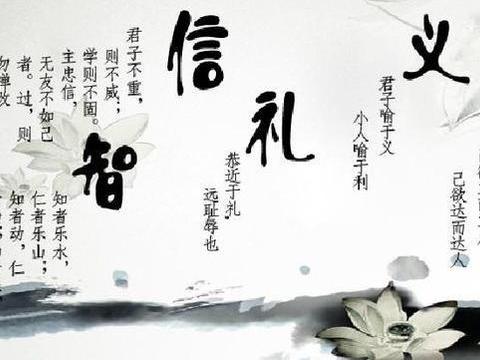 己欲达而达人
义
君子喻于义
小人喻于利
礼
恭近于礼，
远耻辱也
信
君子不重，
则不威；
学则不固。
主忠信，
无友不如己
者。过，则
勿惮改
智
知者乐水，
仁者乐山；
知者动，仁